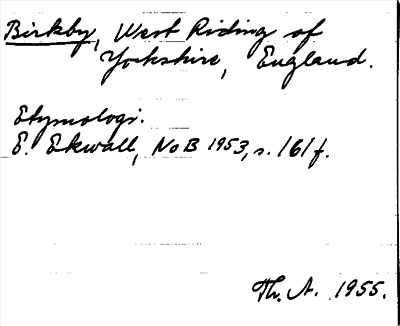 Birkby, West Riding of
Yorkshire, England.
Etymologi.
E. Ekwall, NoB 1953, s. 161f.
Th. A. 1955.